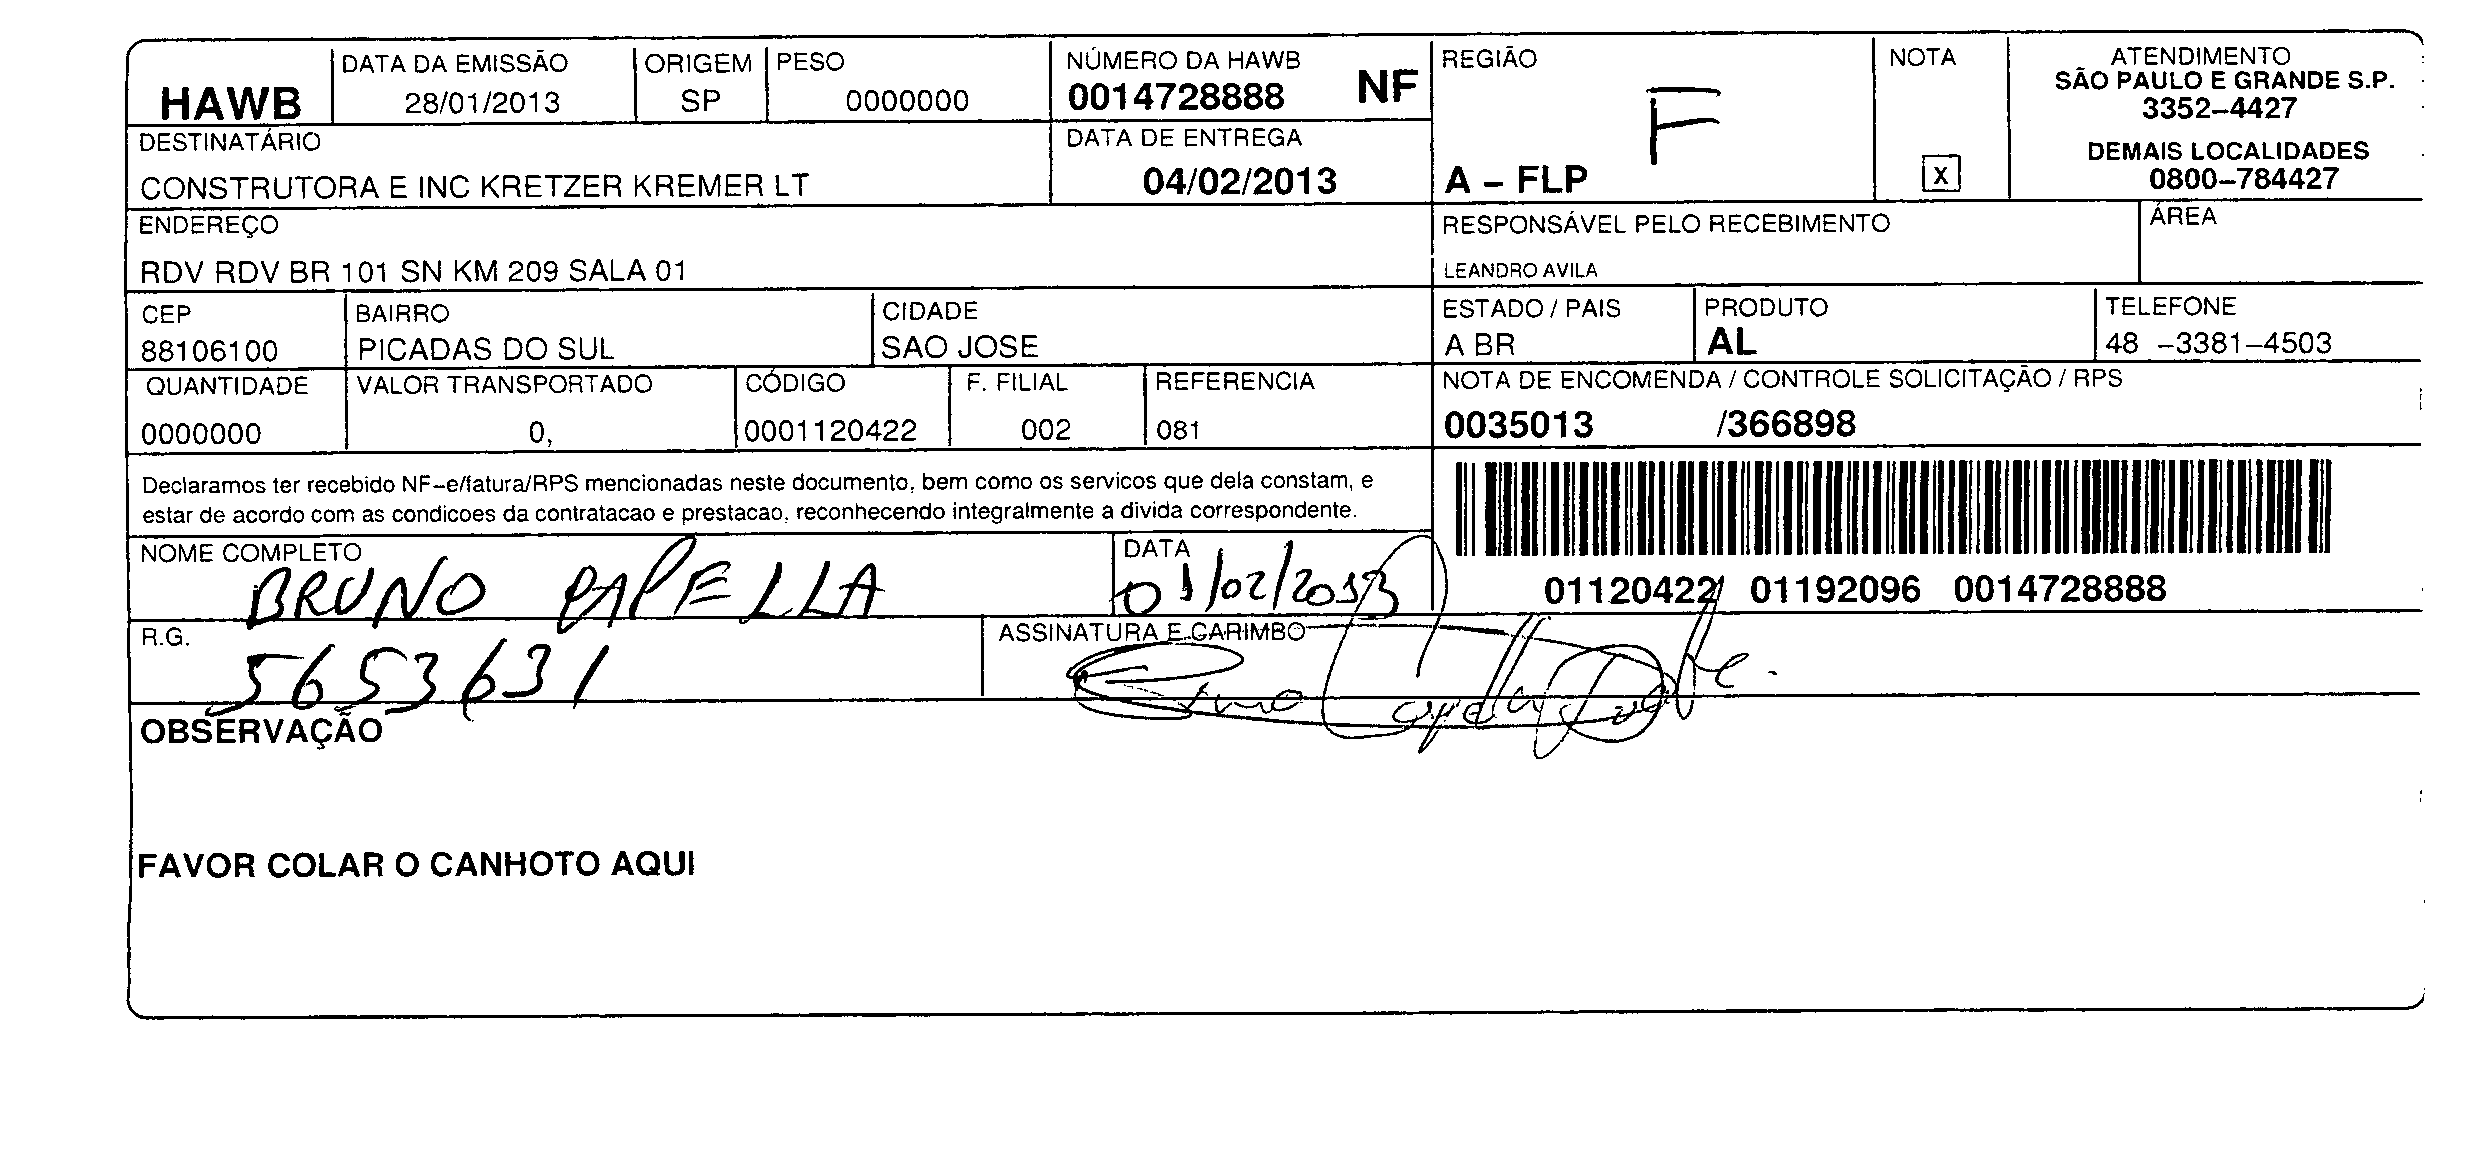 HAWB
DATA DA EMISSÃO
28/01/2013
ORIGEM
SP
PESO
0000000
NÚMERO DA HAWB
0014728888 NF
DATA DE ENTREGA
04/02/2013
REGIÃO
F
A – FLP
NOTA
X
ATENDIMENTO
SÃO PAULO E GRANDE S.P.
3352–4427
DEMAIS LOCALIDADES
0800–784427
DESTINATÁRIO
CONSTRUTORA E INC KRETZER KREMER LT
ENDEREÇO
RDV RDV BR 101 SN KM 209 SALA 01
RESPONSÁVEL PELO RECEBIMENTO
LEANDRO AVILA
ÁREA
CEP
88106100
BAIRRO
PICADAS DO SUL
CIDADE
SAO JOSE
ESTADO / PAIS
A BR
PRODUTO
AL
TELEFONE
48 –3381–4503
QUANTIDADE
0000000
VALOR TRANSPORTADO
0,
CÓDIGO
0001120422
F. FILIAL
002
REFERENCIA
081
NOTA DE ENCOMENDA / CONTROLE SOLICITAÇÃO / RPS
0035013 /366898
Declaramos ter recebido NF–e/fatura/RPS mencionadas neste documento, bem como os servicos que dela constam, e
estar de acordo com as condicoes da contratacao e prestacao, reconhecendo integralmente a divida correspondente.
01120422 01192096 0014728888
NOME COMPLETO
BRUNO PAPELLA
DATA
01/02/2013
R.G.
5653631
ASSINATURA E CARIMBO
OBSERVAÇÃO
FAVOR COLAR O CANHOTO AQUI